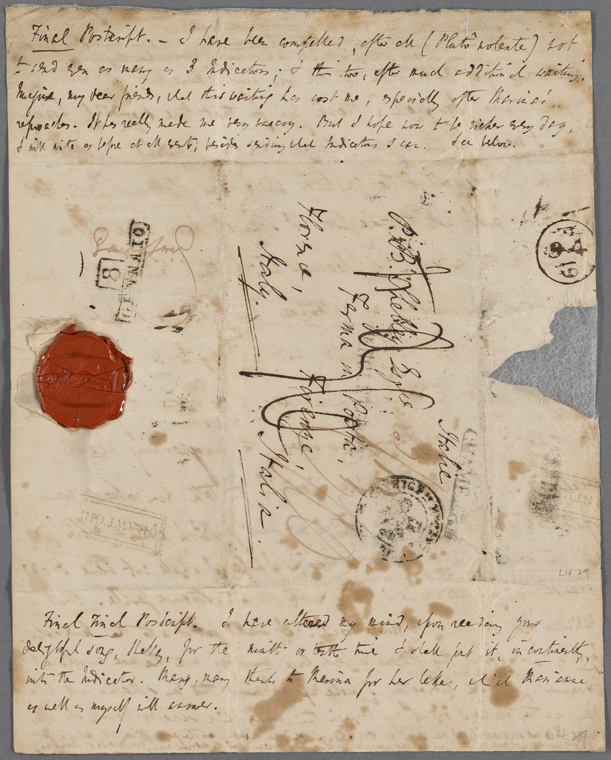 Final Postscript. — I have been compelled, after all (Pluto nolente) not
to send even as many as 3 Indicators; & this too, after much additional writing.
Imagine, my dear friends, what this writing has cost me, especially after Marina's
reproaches. It has really made me very uneasy. But I hope now to be richer every day,
& will write as before at all events, besides sending what Indicators I can. See below.
P. B. Shelley Esqre
Ferma in Posta,
Firenze,
Italia.
Florence,
Italy
Italie
8
GENNAIO
CHAMBERY
LH 29
Final Final Postscript. I have altered my mind, upon reading your
delightful song, Shelley, for the ninth or tenth time & shall put it, incontinently,
into the Indicator. Many, many thanks to Marina for her letter, which Marianne
as well as myself will answer.